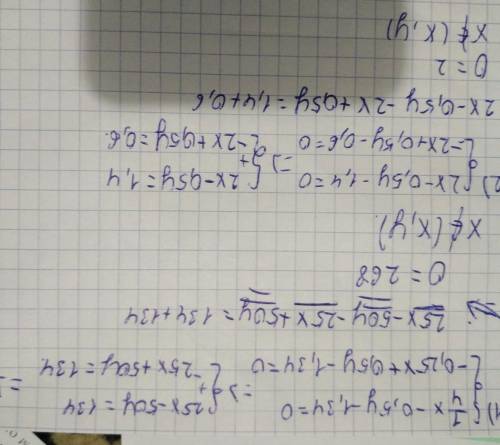 1) { 1/4 x - 0,5y - 1,34 = 0 => { 25x - 50y = 134 =>
-0,25x + 0,5y - 1,34 = 0 + -25x + 50y = 134
25x - 50y - 25x + 50y = 134 + 134
0 = 268
x ∉ (x, y)
2) { 2x - 0,5y - 1,4 = 0 => { 2x - 0,5y = 1,4
-2x + 0,5y - 0,6 = 0 + -2x + 0,5y = 0,6.
2x - 0,5y - 2x + 0,5y = 1,4 + 0,6
0 = 2
x ∉ (x, y)